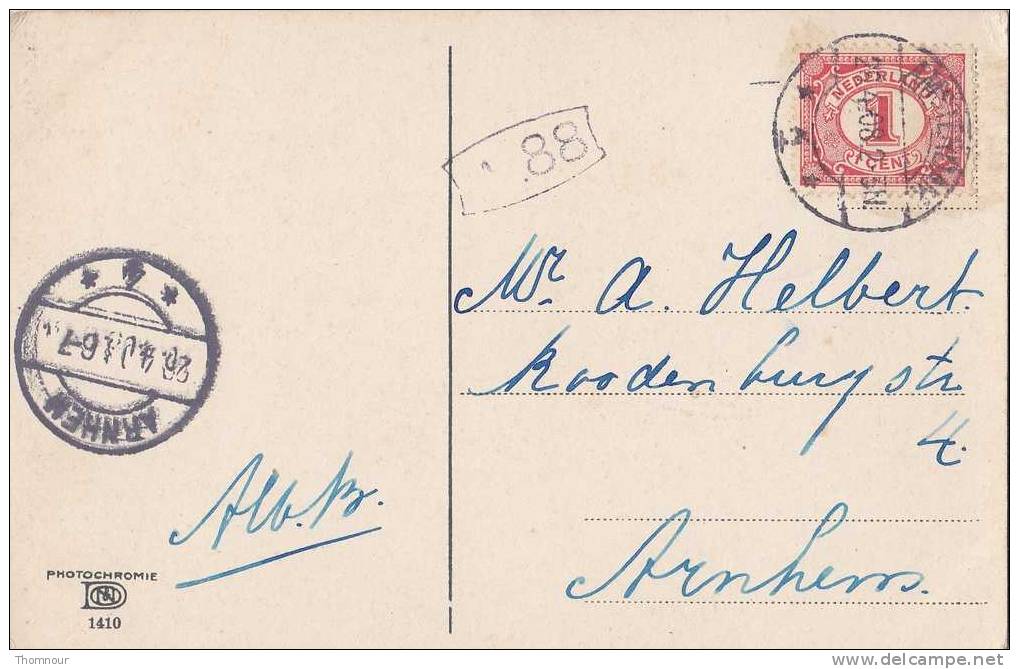 NEDERLAND
1
1 CENT
88
Mr. A. Helbert
Roodenburgstr
4.
Arnhem.
ARNHEM
Alb. Br.
PHOTOCHROMIE
1410
Thomnour
www.delcampe.net